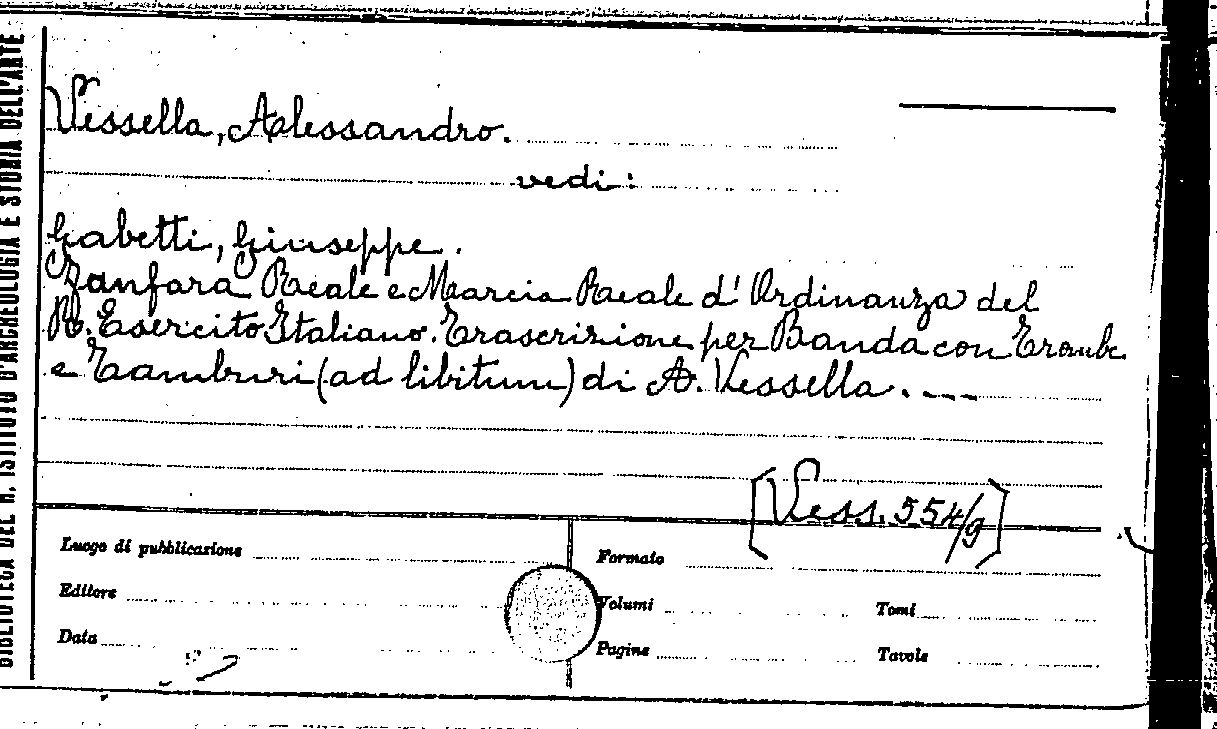 BIBLIOTECA DEL R. ISTITUTO D'ARCHEOLOGIA E STORIA DELL'ARTE
Vessella, Alessandro.
vedi:
Gabetti, Giuseppe.
Fanfara Reale e Marcia Reale d'Ordinanza del
R. Esercito Italiano. Trascrizione per Banda con Trombe
e Tamburi (ad libitum) di A. Vessella.
[Vess. 554/9]
Luogo di pubblicazione
Formato
Editore
Volumi
Tomi
Data
Pagine
Tavole